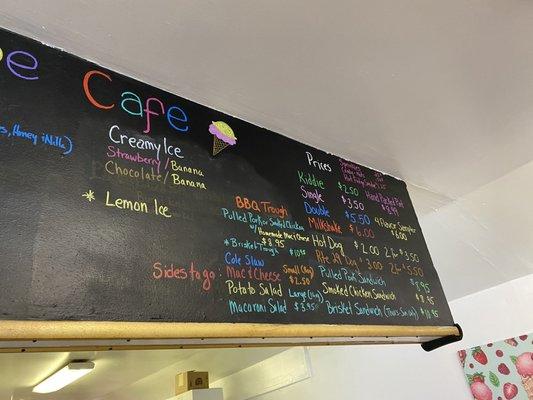 e Cafe
Honey
Creamy Ice
Strawberry/Banana
Chocolate/Banana
* Lemon Ice
BBQ Trough
Pulled Pork or Smoked Chicken
w/ Homemade Mac & Cheese
$8.95
*Brisket Trough
Sides to go
Cole Slaw
Mac & Cheese
Potato Salad
Macaroni Salad
Small
$2.50
Large
$3.95
Prices
Kiddie $2.50
Single $3.50
Double $5.50
Milkshake $6.00
Hand Packed Pint
4 Flavor Sampler
$6.00
Hot Dog $2.00 2 for $3.50
$3.00 2 for $5.50
Pulled Pork Sandwich
Smoked Chicken Sandwich $8.95
Brisket Sandwich $10.95